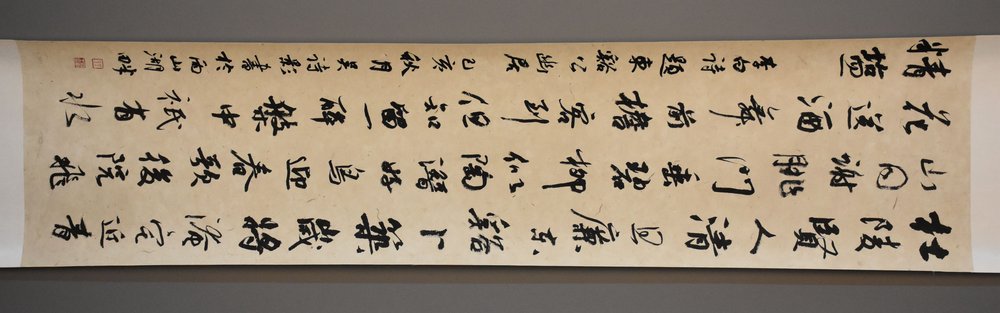 杜陵賢人清且廉東谿卜築歲將淹宅近青
山同謝朓門垂碧柳似陶潛好鳥迎春歌後院飛
花送酒舞前檐客到但知留一醉盤中祗有水
精鹽
李白詩題東谿公幽居 己亥秋月吴詩書於西山湖畔